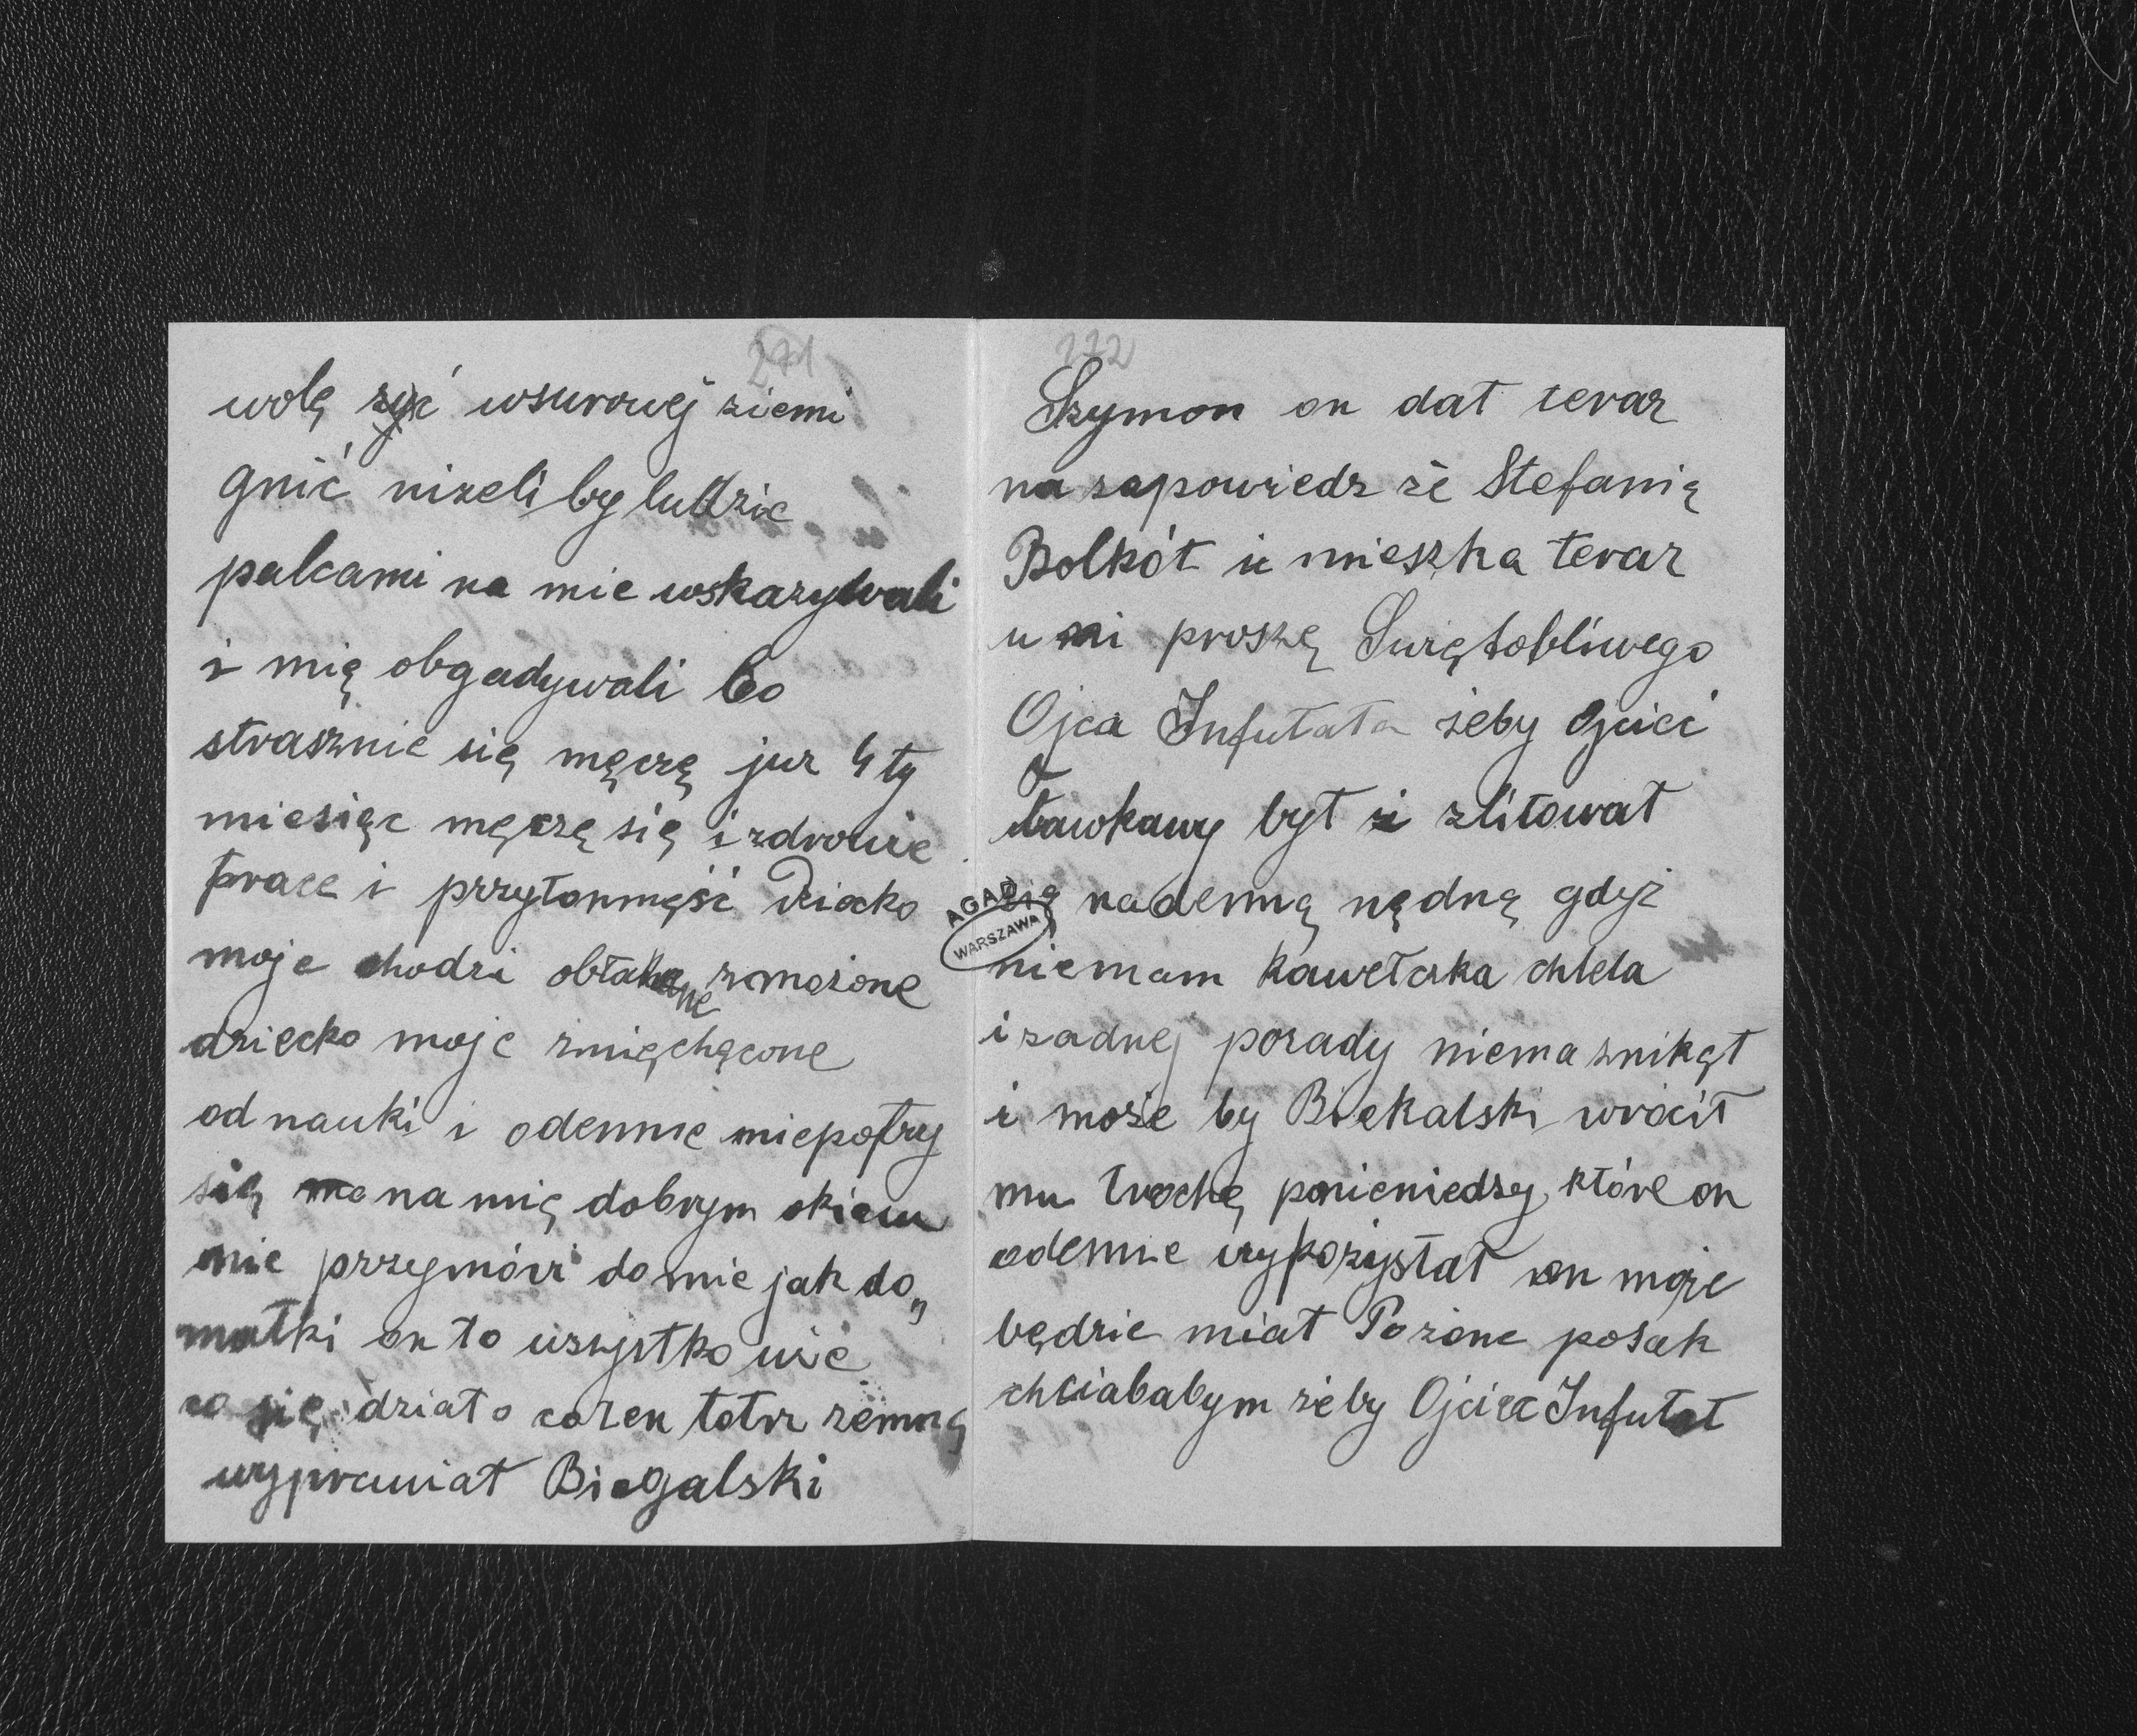 271
wolę wsurowej ziemi
gnić niżeli by ludzie
palcami na mie wskazywali
i mię obgadywali bo
strasznie się męczę jur 4 ty
miesiąc męczę się i zdrowie
prace i przytomność dziecko
moje chodzi obłakane zmożone
dziecko moje zmięchęcone
od nauki i odemnie niepatrzy
się na mię dobrym okiem
nie przymówi do mie jak do„
matki on to wszystko wie
co się działo co zemną
wyprawiał Biegalski
272
Szymon on dał teraz
na zapowiedz ze Stefanią
Bolkót i mieszka teraz
u ni proszę Swiętobliwego
Ojca Infułata żeby Ojciec
ławkawy był i zlitował
się nademną nędną gdyż
niemam kawełczka chleba
i żadnej porady niema znikąt
i może by Biekalski wrócił
mu trochę ponieniedzy które on
odemnie wykożystał on może
będzie miał Pożone posak
chciababym żeby Ojciec Infułat
AGAD
WARSZAWA